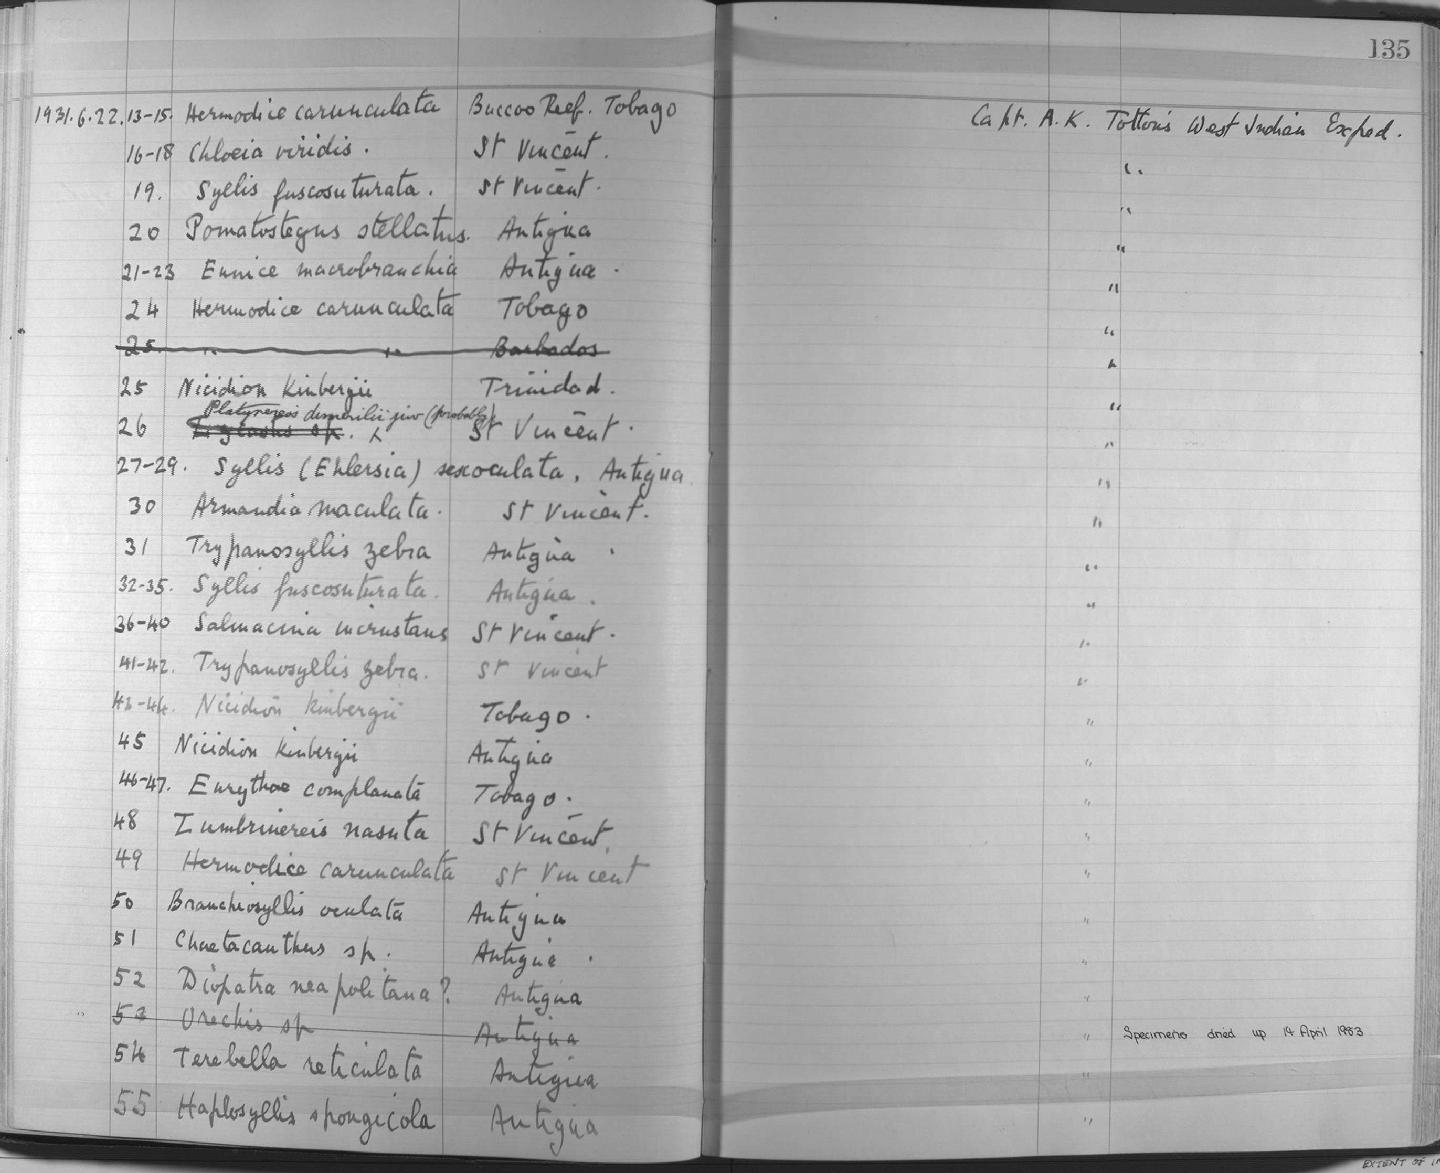 135
1931.6.22.13-15. Hermodice carunculata Buccoo Reef. Tobago Capt. A.K. Totton's West Indian Exped.
16-18 Chloeia viridis. St Vincent. "
19. Syllis fuscosuturata. St Vincent. "
20 Pomatostegus stellatus. Antigua "
21-23 Eunice macrobranchia Antigua. "
24 Hermodice carunculata Tobago "
25. " " Barbados "
25 Nicidion Kinbergii Trinidad. "
Platynereis dumerilii juv (probably)
26 sp. St Vincent. "
27-29. Syllis (Ehlersia) sexoculata. Antigua "
30 Armandia maculata. St Vincent. "
31 Trypanosyllis zebra Antigua "
32-35. Syllis fuscosuturata. Antigua. "
36-40 Salmacina incrustans St Vincent. "
41-42. Trypanosyllis zebra. St Vincent "
43-44. Nicidion kinbergii Tobago. "
45 Nicidion kinbergii Antigua "
46-47. Eurythoe complanata Tobago. "
48 Lumbrinereis nasuta St Vincent. "
49 Hermodice carunculata St Vincent "
50 Branchiosyllis oculata Antigua "
51 Chaetacanthus sp. Antigua. "
52 Diopatra neapolitana? Antigua "
53 Urechis sp Antigua " Specimens dried up 14 April 1983
54 Terebella reticulata Antigua "
55 Haplosyllis spongicola Antigua "
EXTENT OF